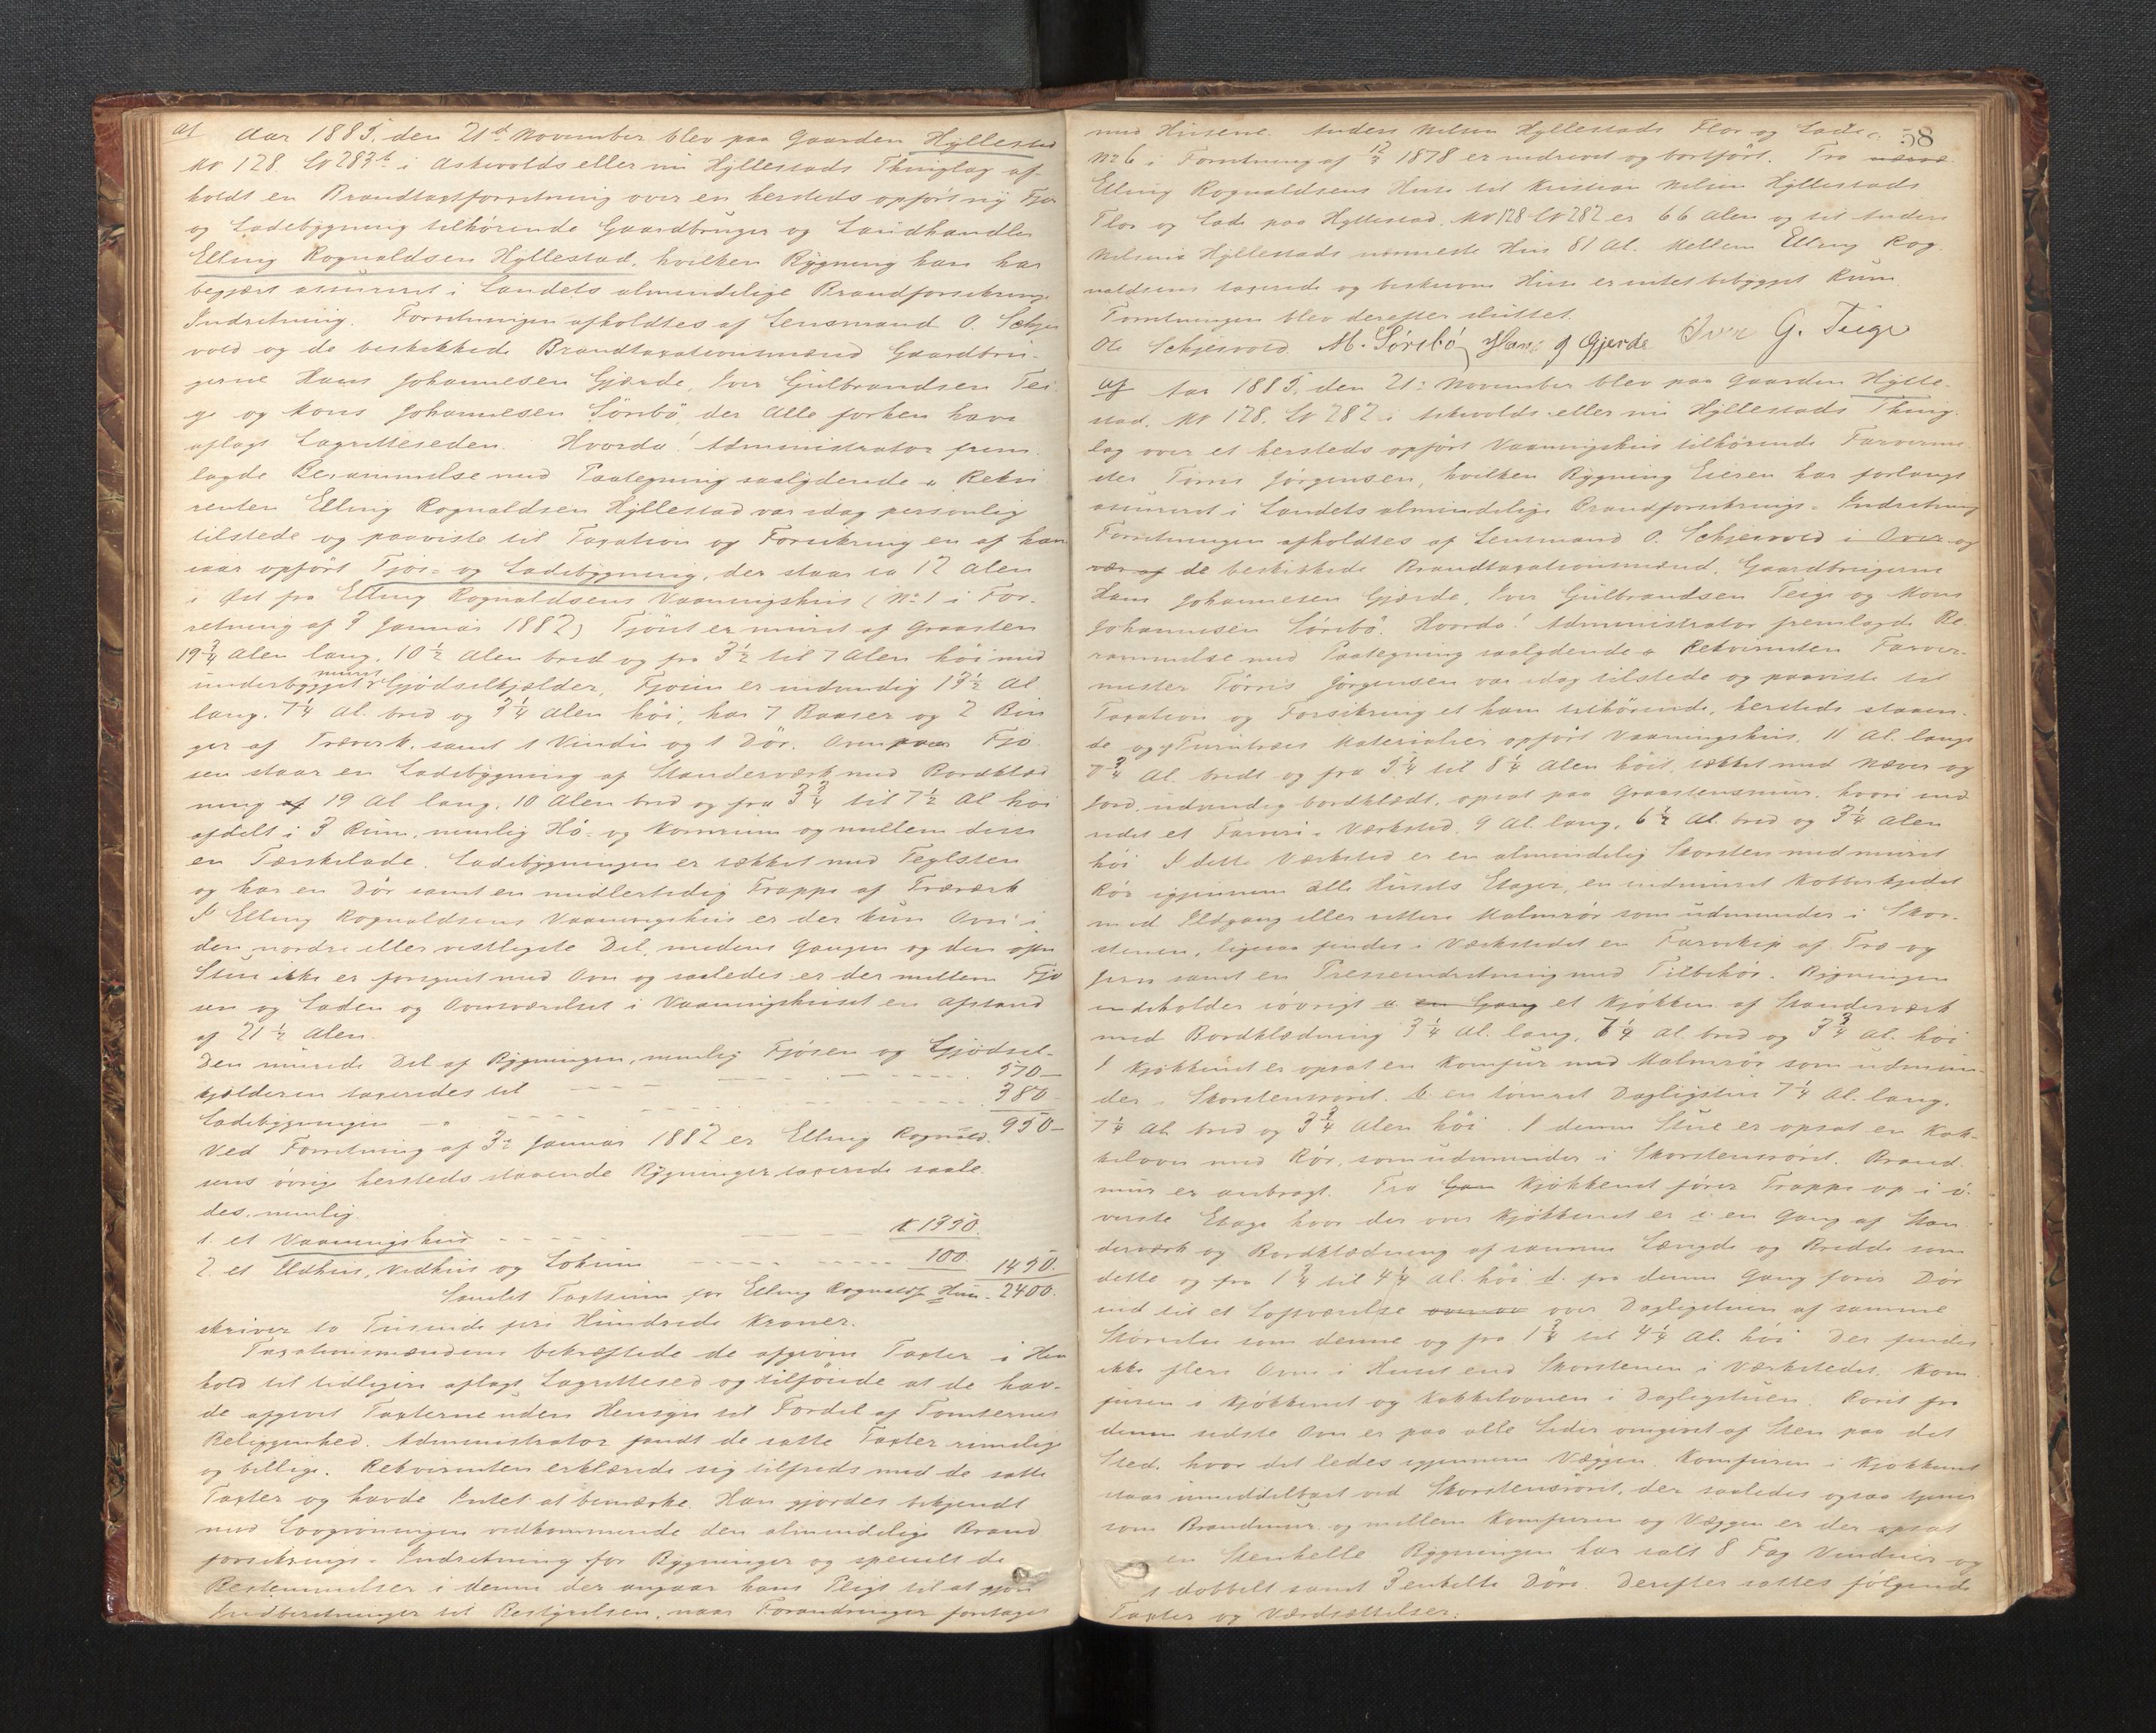 af Aar 1885, den 21de November blev paa Gaarden Hyllestad
No 128 Lv 283b i Askvolds eller nu Hyllestads Thinglag af-
holdt en Brandtaxtforretning over en hersteds opført ny Fjøs
og Ladebygning tilhørende Gaardbruger og Landhandler
Elling Rognaldsen Hyllestad, hvilken Bygning han har
begjært assureret i Landets almindelige Brandforsikrings
Indretning. Forretningen afholdtes af Lensmand O. Schjes
vold og de beskikkede Brandtaxationsmænd Gaardbru-
gerne Hans Johannesen Gjærde, Iver Gulbrandsen Tei
ge og Mons Johannesen Sørebø, der Alle forhen have
aflagt Lagretteseden. Hvorda! Administrator frem
lagde Berammelse med Paategning saalydende a Rekvi
renten Elling Rognaldsen Hyllestad var idag personlig
tilstede og paaviste til Taxation og Forsikring en af ham
iaar opført Fjøs- og Ladebygning, der staar ca 12 Alen
i Øst fra Elling Rognaldsens Vaaningshus (No 1 i For-
retning af 3 Januar 1882) Fjøset er muret af Graasten
19 3/4 Alen lang, 10 1/2 Alen bred og fra 3 1/2 til 7 Alen høi med
underbygget muret Gjødselkjælder, Fjøsen er indvendig 13 1/2 Al
lang. 7 1/4 Al. bred og 3 1/4 Alen høi, har 7 Baaser og 2 Bin
ger af Træverk, samt 1 Vindu og 1 Dør. Ovenpaa Fjø
sen staar en Ladebygning af Standerværk med Bordklæd
ning af 19 Al lang, 10 Alen bred og fra 3 3/4 til 7 1/2 Al høi
afdelt i 3 Rum, nemlig Hø- og Kornrum og mellem disse
en Tærskelade. Ladebygningen er tækket med Teglsten
og har en Dør samt en midlertidig Trappe af Træværk
I Elling Rognaldsens Vaaningshus er der kun Ovn i
den nordre eller vestligste Del, medens Gangen og den østre
Stue ikke er forsynet med Ovn og saaledes er der mellem Fjø
sen og Laden og Ovnsværelset i Vaaningshuset en Afstand
af 21 1/2 Alen.
Den murede Del af Bygningen, nemlig Fjøsen og Gjødsel-
kjælderen taxeredes til 570-
Ladebygningen - " 380-
950-
Ved Forretning af 3die Januar 1882 er Elling Rognald-
sens øvrige hersteds staaende Bygninger taxerede saale
des, nemlig
1. et Vaaningshus K 1350.
2. et Ildhus, Vedhus og Lokum 100. 1450.
Samlet Taxtsum for Elling Rognaldss Huse - 2400.
skriver to Tusinde fire Hundrede Kroner.
Taxationsmændene bekræftede de afgivne Taxter i Hen
hold til tidligere aflagt Lagrettesed og tilføiede at de hav-
de afgivet Taxterne uden Hensyn til Fordel af Tomternes
Beliggenhed. Administrator fandt de satte Taxter rimelige
og billige. Rekvirenten erklærede sig tilfreds med de satte
Taxter og havde Intet at bemærke. Han gjordes bekjendt
med Lovgivningen vedkommende den almindelige Brand
forsikrings-Indretning for Bygninger og specielt de
Bestemmelser i denne der angaar hans Pligt til at gjøre
Indberetninger til Bestyrelsen, naar Forandringer foretages
58
med Husene. Anders Nilsen Hyllestads Flor og Lade
No 6 i Forretning af 12/7 1878 er nedrevet og bortført. Fra
Elling Rognaldsens Huse til Kristian Nilsen Hyllestads
Flor og Lade paa Hyllestad, No 128 Lv 282 er 66 Alen og til Anders
Nilsens Hyllestads nærmeste Hus 81 Al. Mellem Elling Rog
naldsens taxerede og beskrevne Huse er intet bebygget Rum
Forretningen blev derefter sluttet.
Ole Schjesvold. M. Sørebø Hans J Gjerde Iver G. Teige
af Aar 1885, den 21de November blev paa Gaarden Hylle-
stad, No 128, Lv 282 i Askvolds eller nu Hyllestads Thing-
lag over et hersteds opført Vaaningshus tilhørende Farverme
ster Tørris Jørgensen, hvilken Bygning Eieren har forlangt
assureret i Landets almindelige Brandforsikrings-Indretning
Forretningen afholdtes af Lensmand O. Schjesvold i Over og
vær af de beskikkede Brandtaxationsmænd, Gaardbrugerne
Hans Johannesen Gjærde, Iver Gulbrandsen Teige og Mons
Johannesen Sørebø. Hvorda! Administrator fremlagde Be-
rammelse med Paategning saalydende a Rekvirenten Farver-
mester Tørris Jørgensen var idag tilstede og paaviste til
Taxation og Forsikring et ham tilhørende, hersteds staaen-
de og af Furutræs Materialier opført Vaaningshus, 11 Al. langt
7 3/4 Al. bredt og fra 3 1/4 til 8 1/4 Alen høit, tækket med Næver og
Jord, udvendig bordklædt, opsat paa Graastensmur, hvori ind
redet et Farveri-Værksted, 9 Al. lang, 6 1/2 Al. bred og 3 1/4 Alen
høi I dette Værksted er en almindelig Skorsten med muret
Rør igjennem alle Husets Etager, en indmuret Kobberkjedel
med Ildgang eller rettere Malmrør som udmunder i Skor-
stenen, ligesaa findes i Værkstedet en Farvekip af Træ og
Jern samt en Presseindretning med Tilbehør. Bygningen
indeholder iøvrigt a en Gang et Kjøkken af Standerværk
med Bordklædning 3 1/4 Al. lang, 7 1/4 Al. bred og 3 3/4 Al. høi
I Kjøkkenet er opsat en Komfur med Malmrør som udmun-
der i Skorstensrøret. b. en tømret Dagligstue 7 1/4 Al. lang,
7 1/4 Al. bred og 3 3/4 Alen høi. I denne Stue er opsat en Kak-
kelovn med Rør, som udmunder i Skorstensrøret. Brand-
mur er anbragt. Fra Gan Kjøkkenet fører Trappe op i ø-
verste Etage hvor der over Kjøkkenet er c. en Gang af Stan
derværk og Bordklædning af samme Længde og Bredde som
dette og fra 1 3/4 til 4 1/4 Al. høi d. fra denne Gang fører Dør
ind til et Loftværelse over Dagligstuen af samme
Størrelse som denne og fra 1 3/4 til 4 1/4 Al. høi Der findes
ikke flere Ovne i Huset end Skorstenen i Værkstedet, Kom
furen i Kjøkkenet og Kakkelovnen i Dagligstuen. Røret fra
denne sidste Ovn er paa alle Sider omgivet af Sten paa det
Sted, hvor det ledes igjennem Væggen. Komfuren i Kjøkkenet
staar umiddelbart ved Skorstensrøret, der saaledes ogsaa tjener
som Brandmur og mellem Komfuren og Væggen er der opsat
en Stenhelle Bygningen har ialt 8 Fag Vinduer og
1 dobbelt samt 3 enkelte Døre. Derefter sattes følgende
Taxter og Værdsættelser: